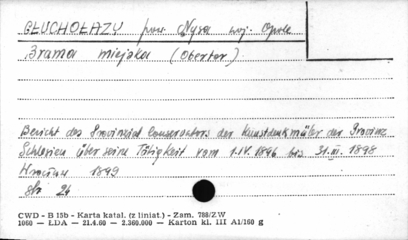 GŁUCHOŁAZY pow. Nysa woj. Opole
Brama miejska (Obertor)
Bericht des Provinzial Conservators der Kunstdenkmäler der Provinz
Schlesien über seine Tätigkeit vom 1.IV.1896 bis 31.III.1898
Wrocław 1899
str 24
CWD - B 15b - Karta katal. (z liniat.) - Zam. 788/ZW
1060 — LDA — 21.4.60 — 2.360.000 — Karton kl. III A1/160 g